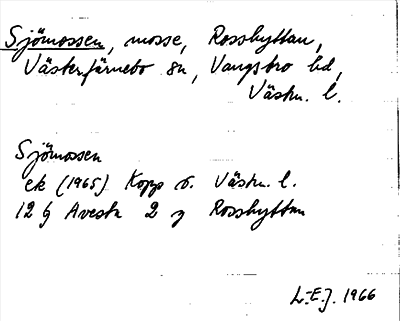 Sjömossen, mosse, Rosshyttan,
Västerfärnebo sn, Vangsbro hd,
Västm. l.
Sjömossen
ek (1965) Kopp o. Västm. l.
12 G Avesta 2 g Rosshyttan
L-E.J. 1966